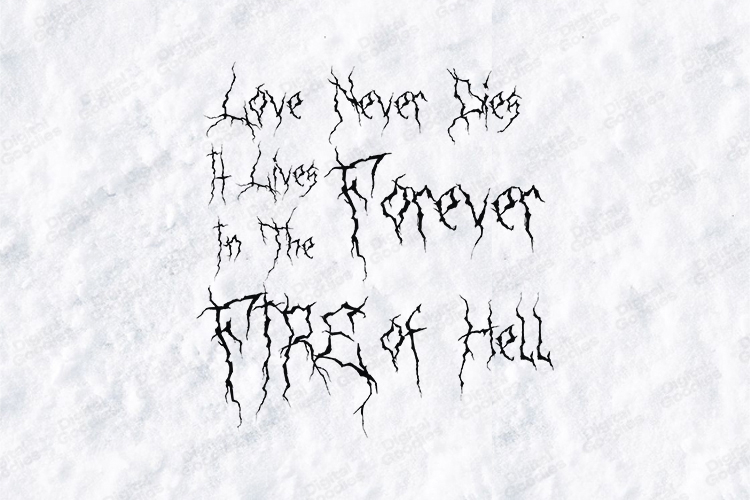 Love Never Dies
It Lives Forever
In The
FIRE of Hell